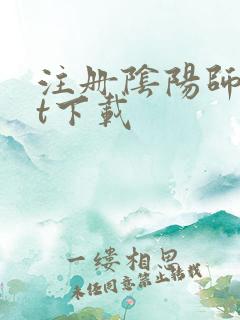 注册陰陽師
t下載
一缕相思
未经同意禁止转载